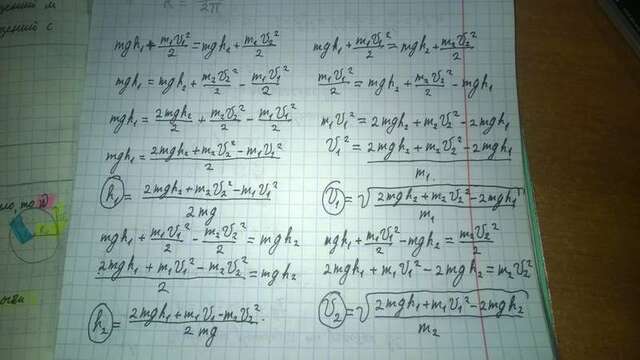 mgh₁ + m₁v₁²/2 = mgh₂ + m₂v₂²/2
mgh₁ = mgh₂ + m₂v₂²/2 - m₁v₁²/2
mgh₁ = 2mgh₂/2 + m₂v₂²/2 - m₁v₁²/2
mgh₁ = (2mgh₂ + m₂v₂² - m₁v₁²)/2
h₁ = (2mgh₂ + m₂v₂² - m₁v₁²)/2mg
mgh₁ + m₁v₁²/2 - m₂v₂²/2 = mgh₂
(2mgh₁ + m₁v₁² - m₂v₂²)/2 = mgh₂
h₂ = (2mgh₁ + m₁v₁ - m₂v₂²)/2mg
mgh₁ + m₁v₁²/2 = mgh₂ + m₂v₂²/2
m₁v₁²/2 = mgh₂ + m₂v₂²/2 - mgh₁
m₁v₁² = 2mgh₂ + m₂v₂² - 2mgh₁
v₁² = (2mgh₂ + m₂v₂² - 2mgh₁)/m₁
v₁ = √((2mgh₂ + m₂v₂² - 2mgh₁)/m₁)
mgh₁ + m₁v₁²/2 - mgh₂ = m₂v₂²/2
2mgh₁ + m₁v₁² - 2mgh₂ = m₂v₂²
v₂ = √((2mgh₁ + m₁v₁² - 2mgh₂)/m₂)